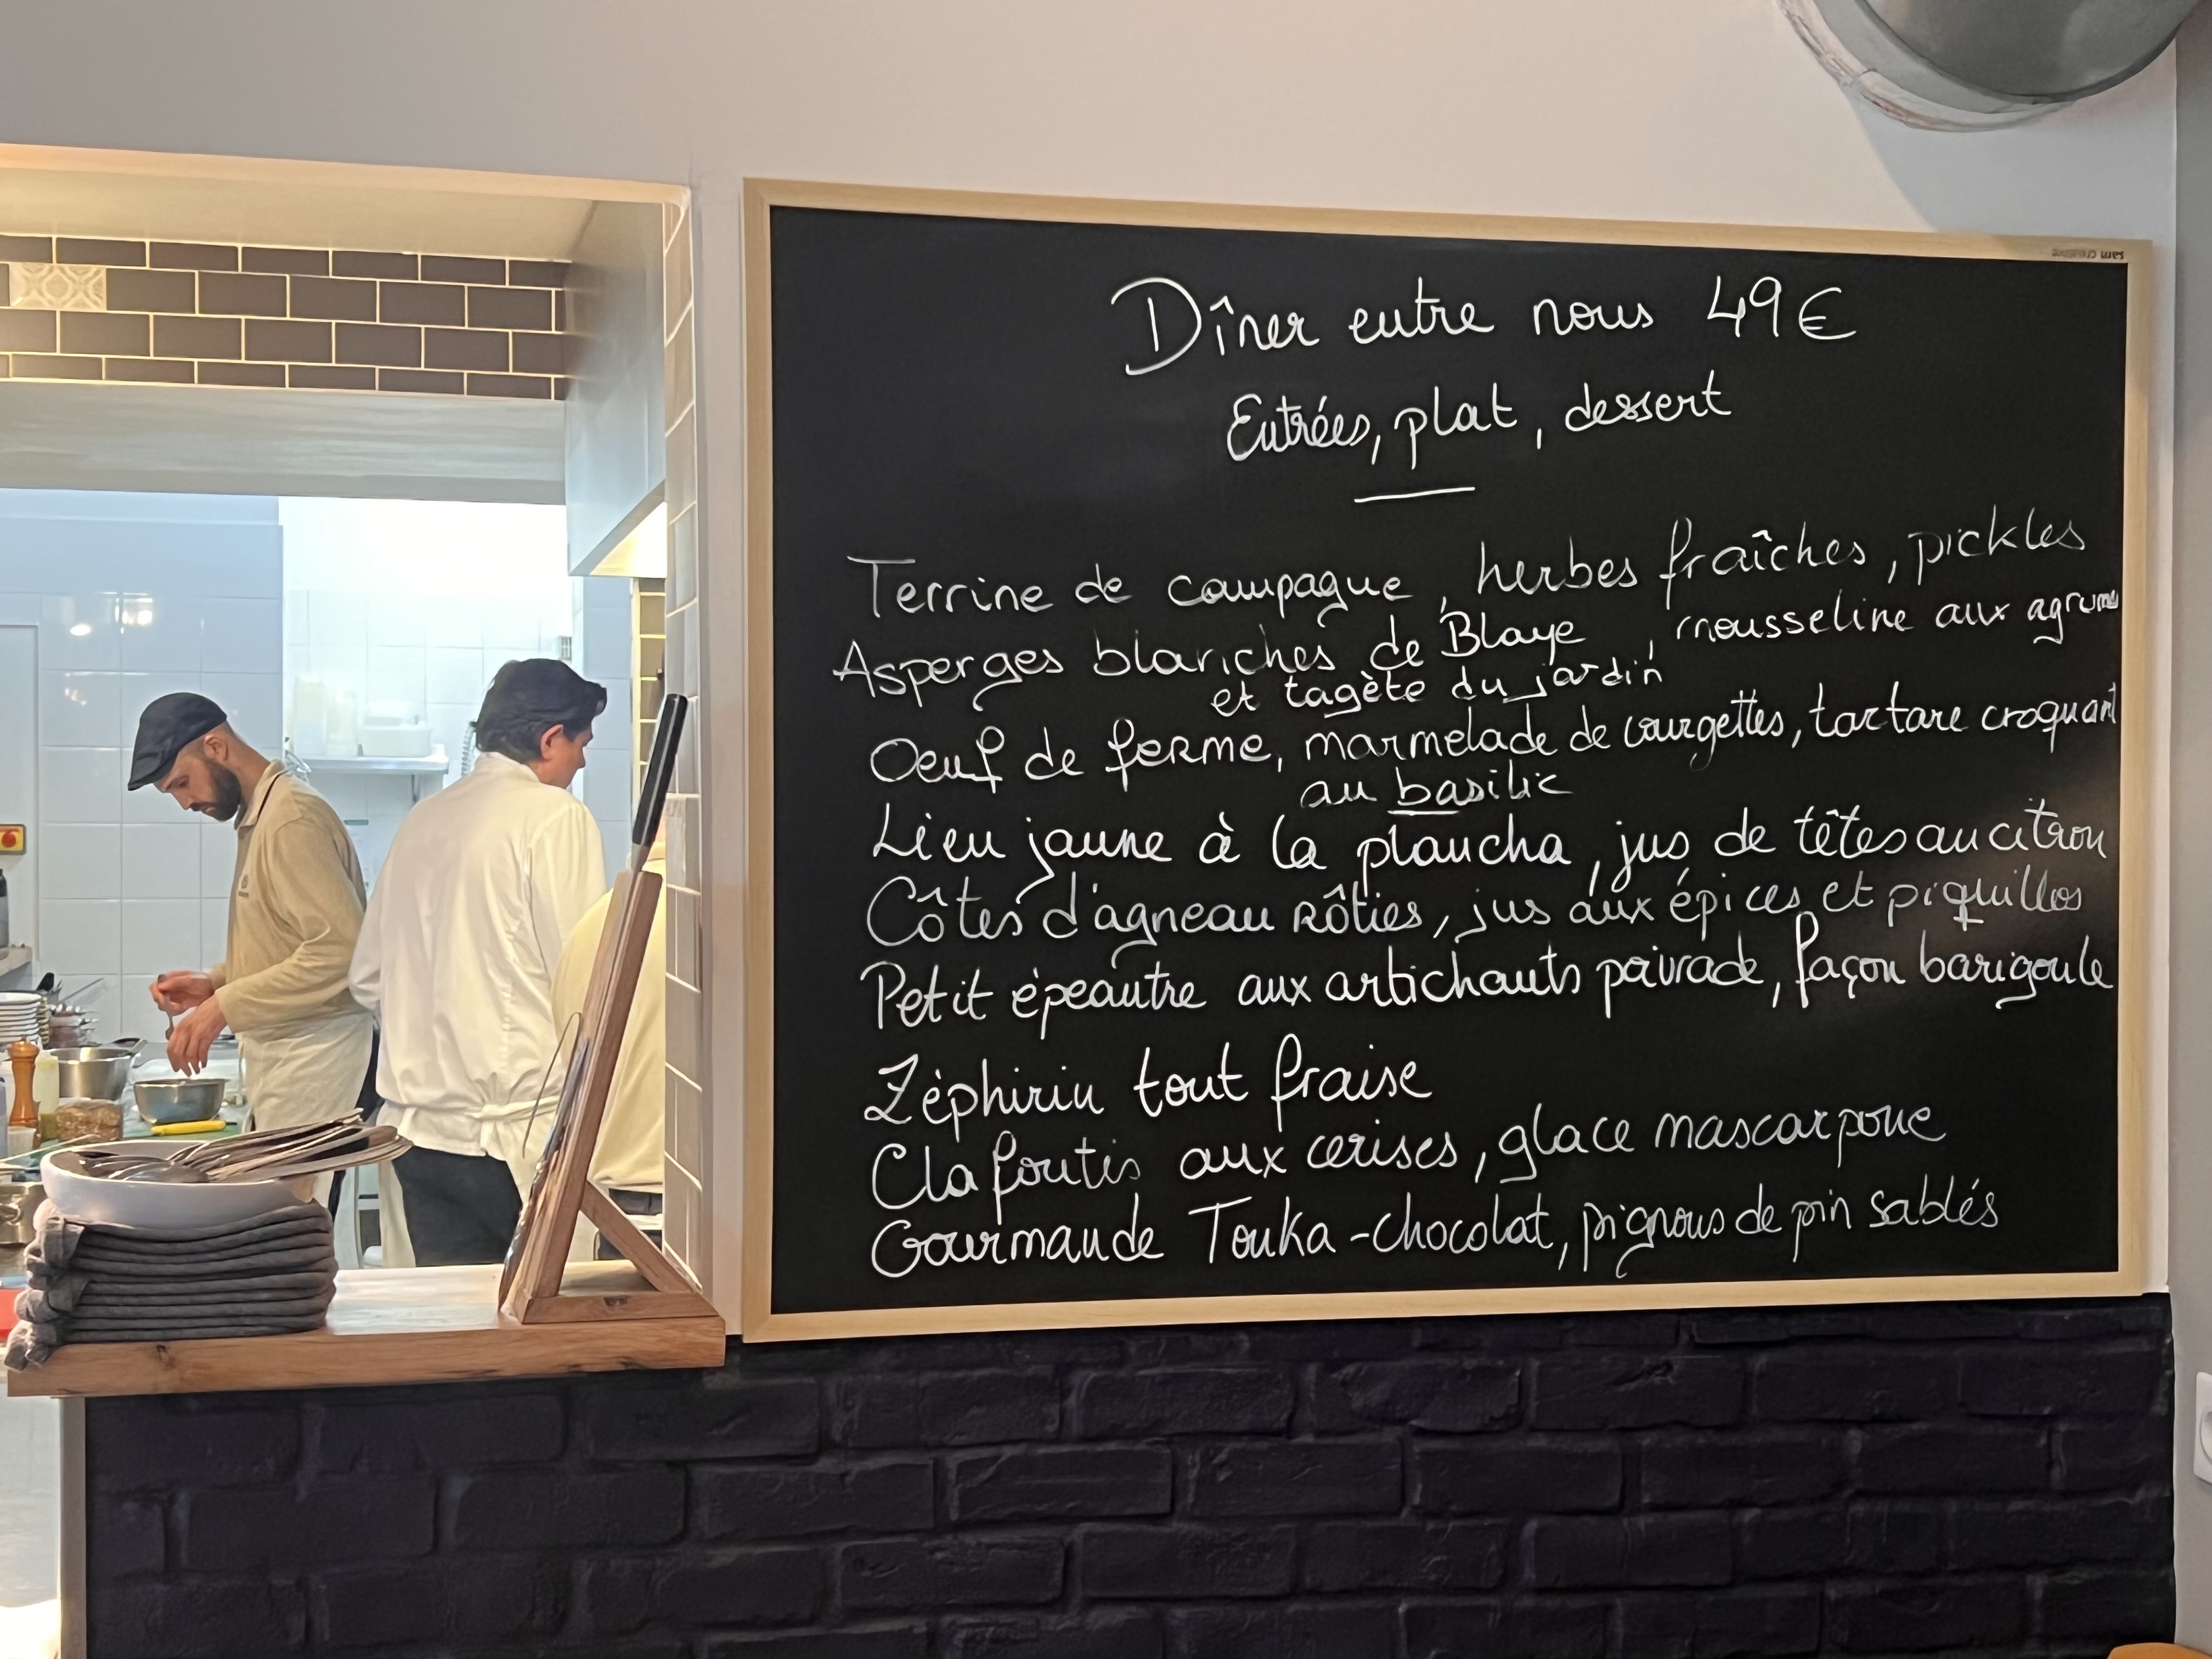 sam creative
Dîner entre nous 49€
Entrées, plat, dessert
Terrine de campagne, herbes fraîches, pickles
Asperges blanches de Blaye, mousseline aux agrumes
et tagète du jardin
Oeuf de ferme, marmelade de courgettes, tartare croquant
au basilic
Lieu jaune à la plancha, jus de têtes au citron
Côtes d'agneau rôties, jus aux épices et piquillos
Petit épeautre aux artichauts poivrade, façon barigoule
Zéphirin tout fraise
Clafoutis aux cerises, glace mascarpone
Gourmande Touka-chocolat, pignons de pin sablés